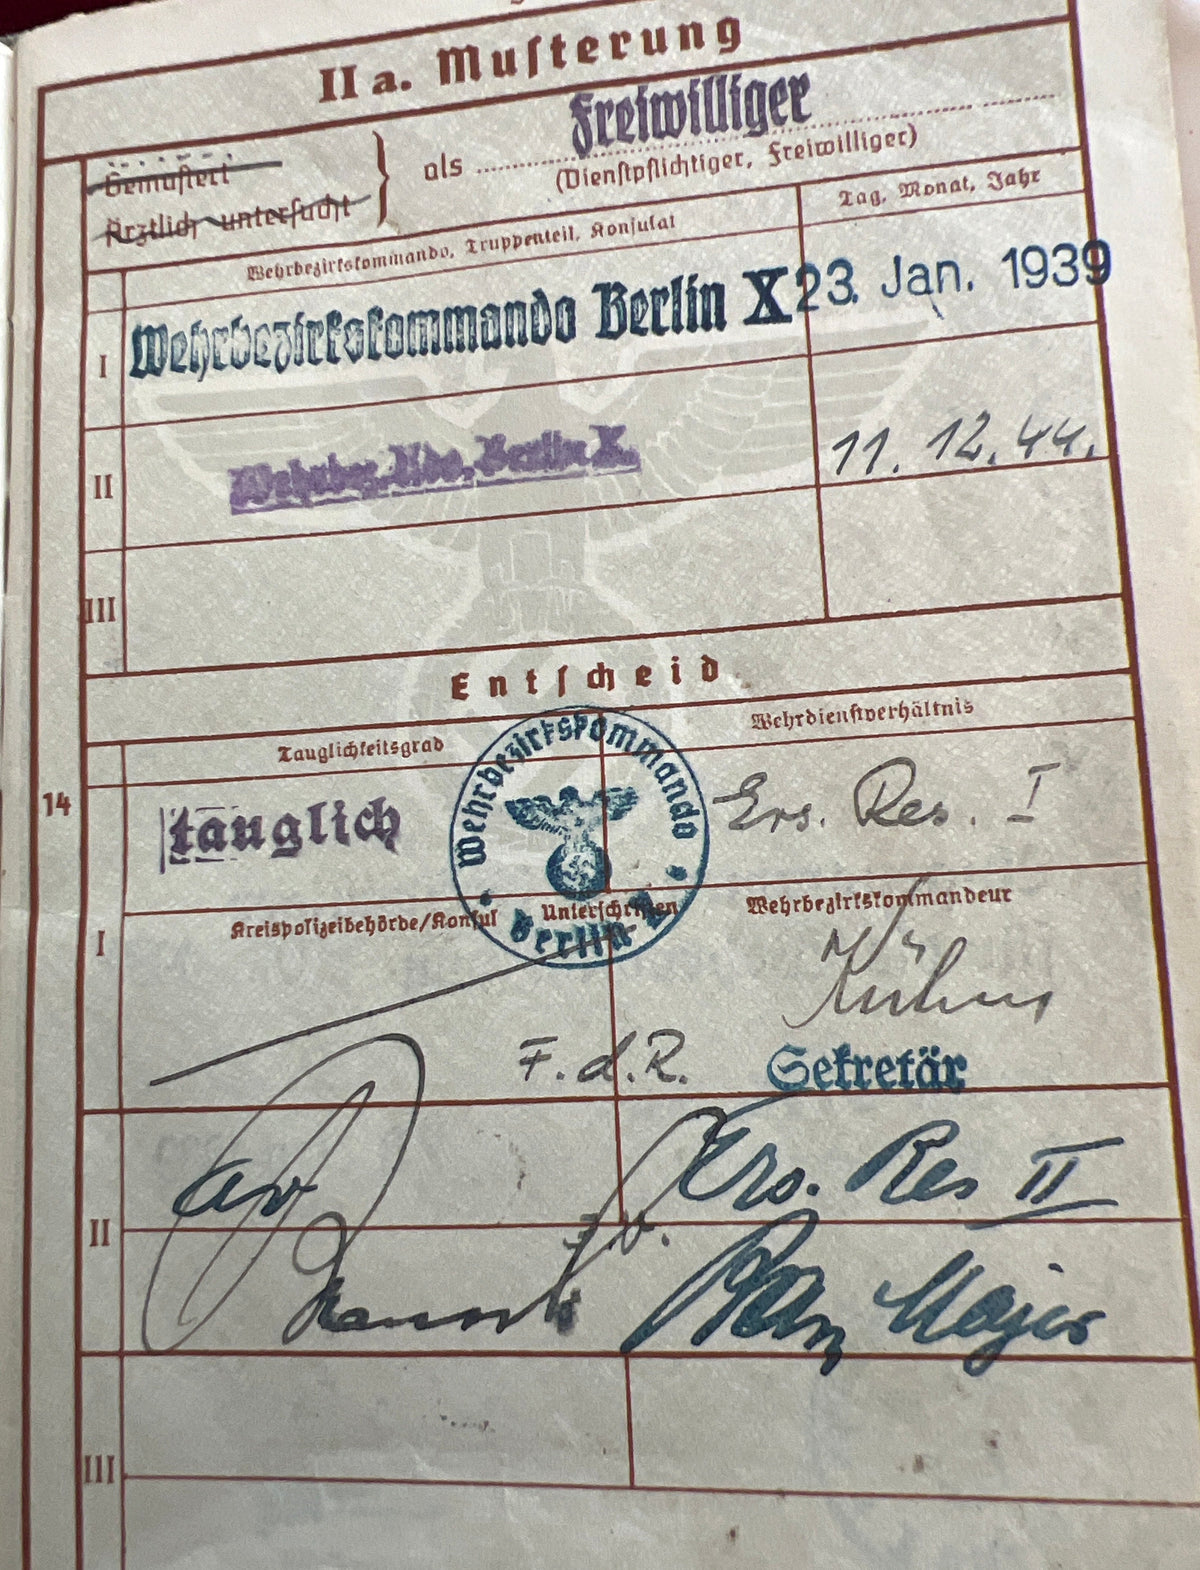 II a. Musterung
Freiwilliger
Gemustert
Ärztlich untersucht
als
(Dienstpflichtiger, Freiwilliger)
Wehrbezirkskommando, Truppenteil, Konsulat
Tag, Monat, Jahr
I
Wehrbezirkskommando Berlin X
23. Jan. 1939
II
Wehrbez. Kdo. Berlin X.
11. 12. 44.
III
Entscheid
Tauglichkeitsgrad
Wehrdienstverhältnis
14
tauglich
Wehrbezirkskommando
Berlin
Ers. Res. I
I
Kreispolizeibehörde/Konsul
Unterschriften
Wehrbezirkskommandeur
F. d. R.
Sekretär
II
av
Ers. Res II
Major
III